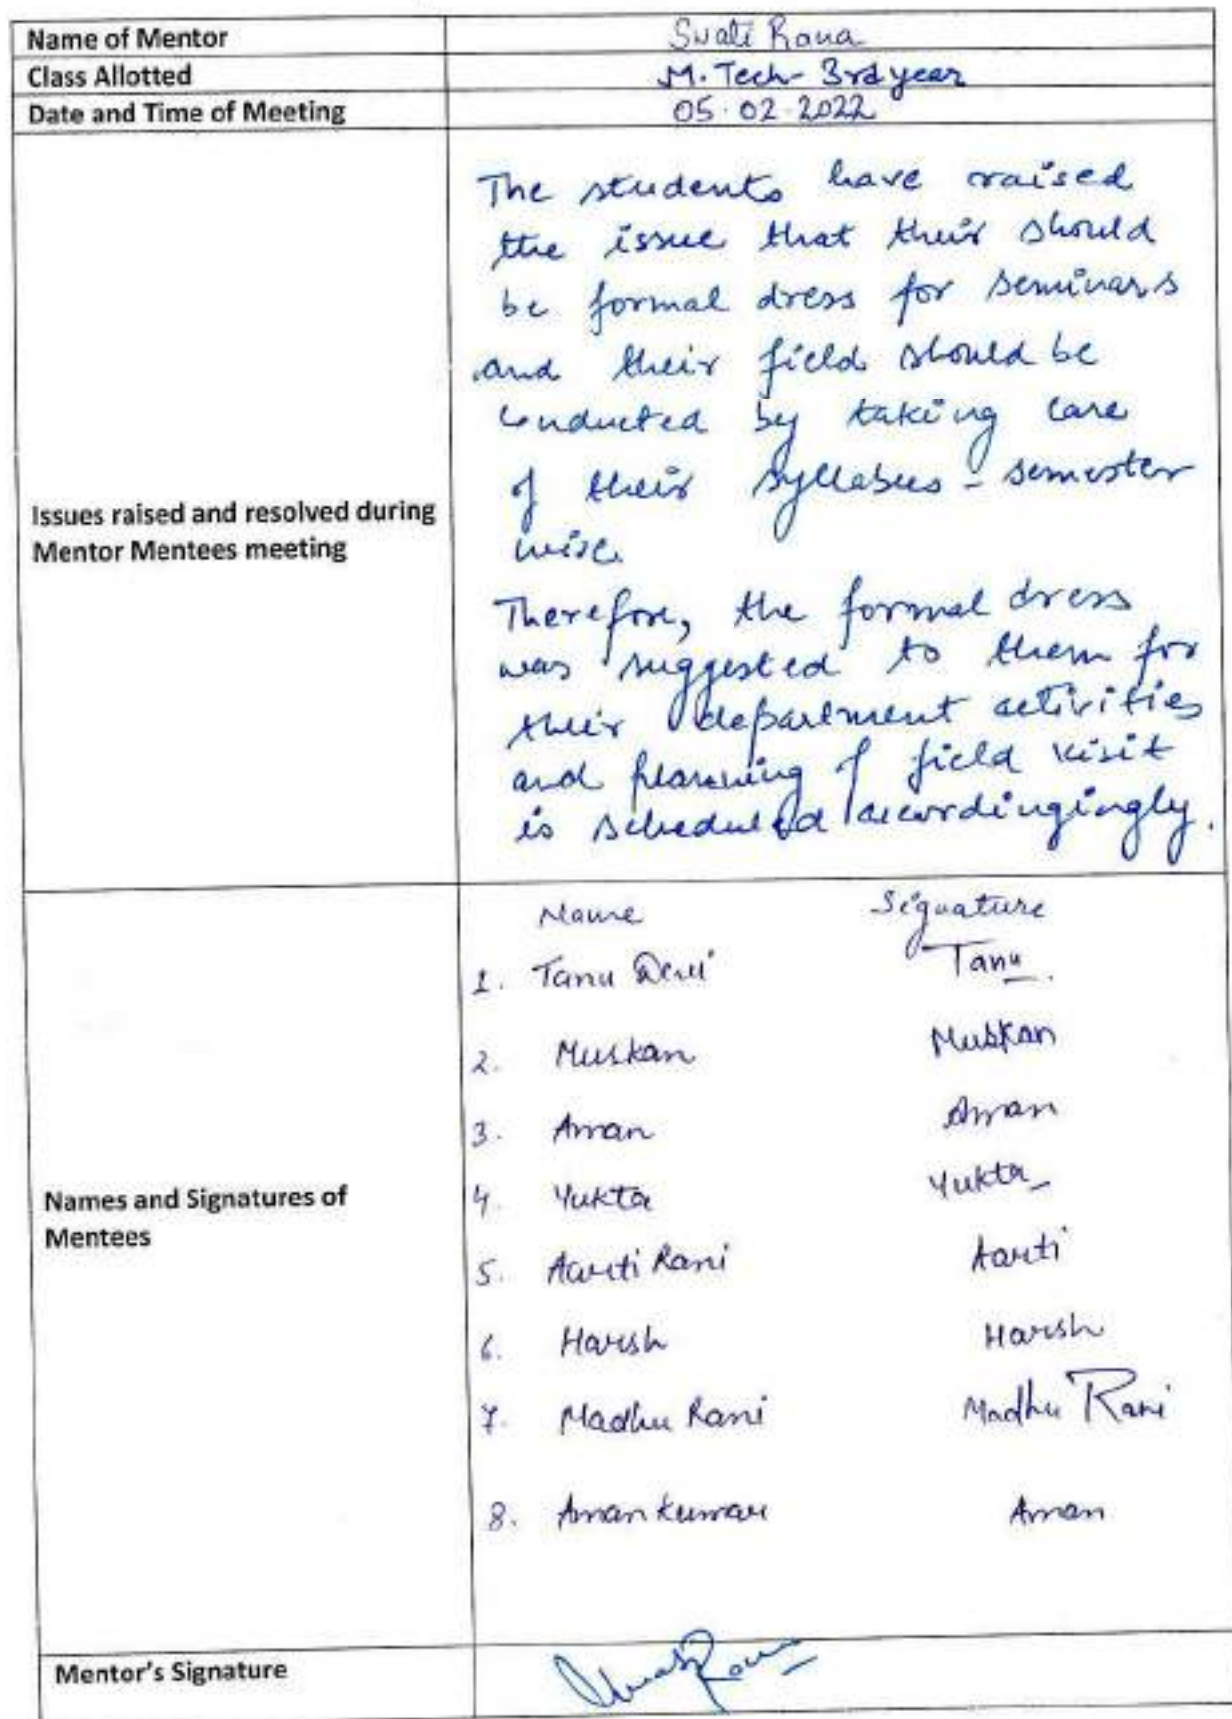 Name of Mentor Swati Rana
Class Allotted M.Tech- 3rd year
Date and Time of Meeting 05.02.2022
Issues raised and resolved during
Mentor Mentees meeting
The students have raised
the issue that their should
be formal dress for seminars
and their field should be
conducted by taking care
of their syllabus - semester
wise
Therefore, the formal dress
was suggested to them for
their department activities
and planning of field visit
is scheduled accordingingly.
Names and Signatures of
Mentees
Name Signature
1. Tanu Devi Tanu
2. Muskan Muskan
3. Aman Aman
4. Yukta Yukta
5. Aarti Rani Aarti
6. Harsh Harsh
7. Madhu Rani Madhu Rani
8. Aman Kumar Aman
Mentor's Signature Swati Rana